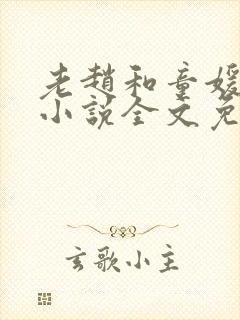 老赵和童媛
小说全文免
玄歌小主